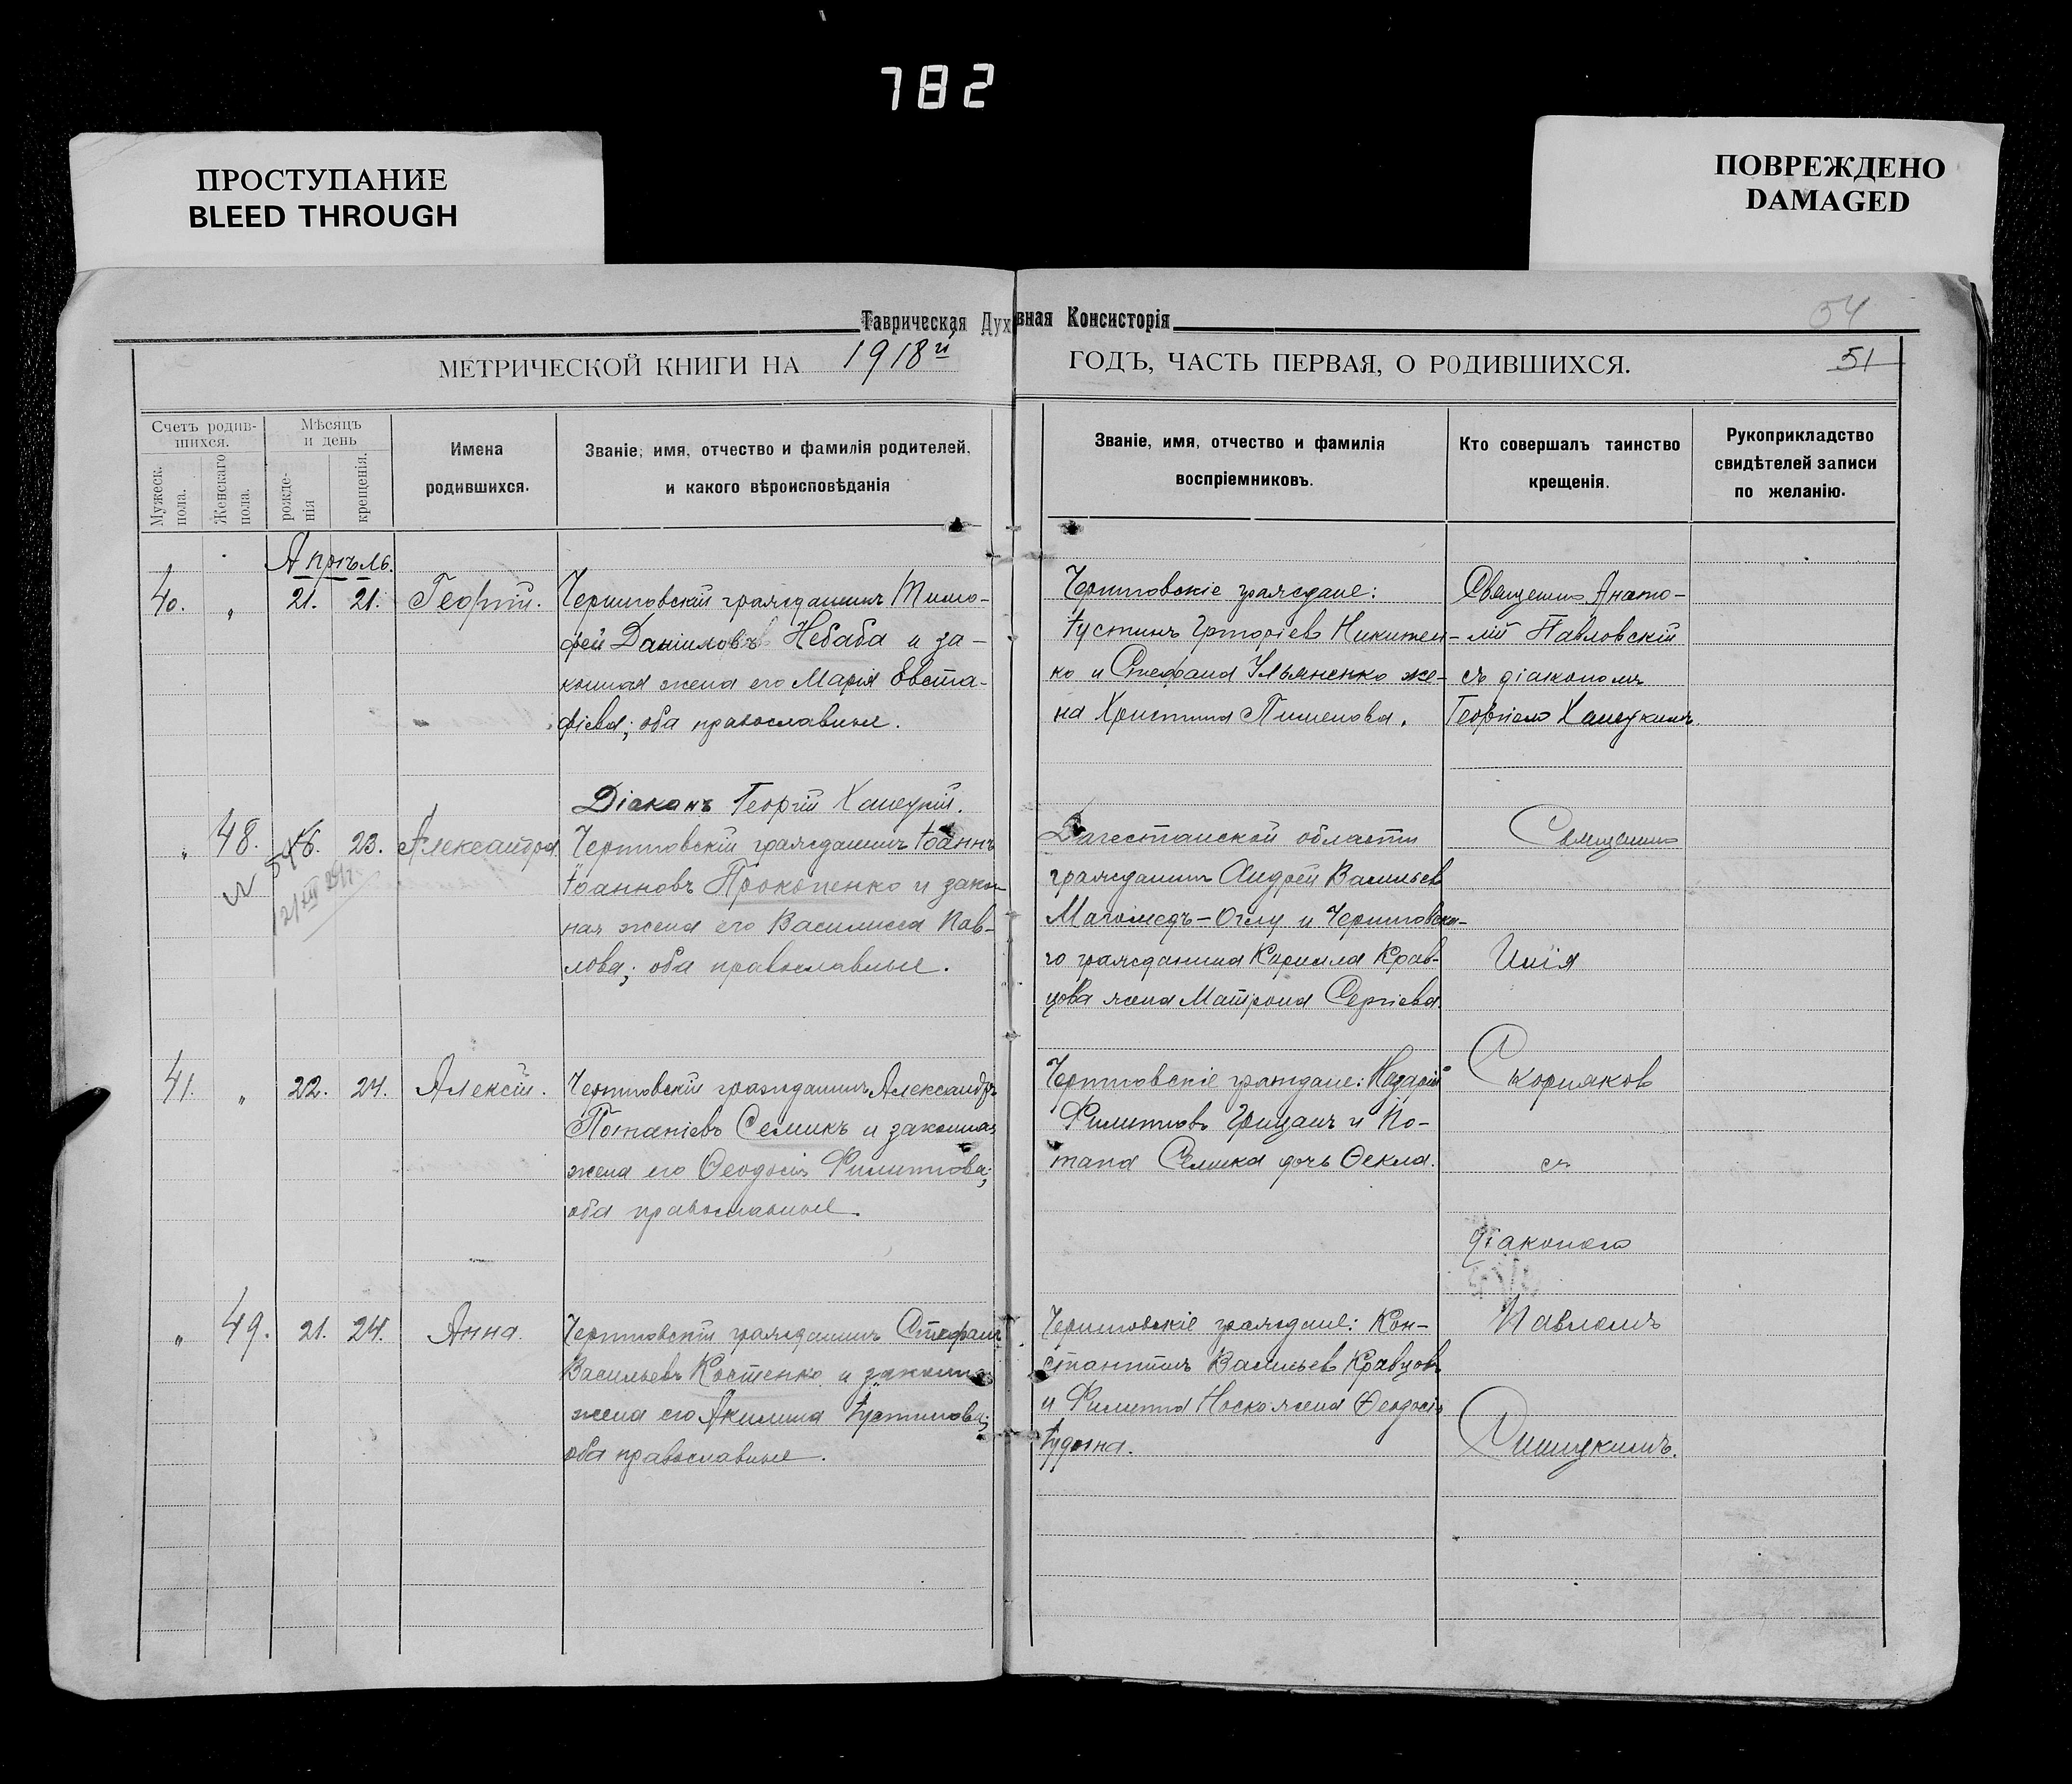 782
ПРОСТУПАНИЕ
BLEED THROUGH
ПОВРЕЖДЕНО
DAMAGED
Таврическая Духовная Консисторія
54
МЕТРИЧЕСКОЙ КНИГИ НА 1918й ГОДЪ, ЧАСТЬ ПЕРВАЯ, О РОДИВШИХСЯ.
51
Счетъ родив-
шихся.
Мужеск.
пола.
Женскаго
пола.
Мѣсяцъ
и день
рожде-
нія
крещенія.
Имена
родившихся.
Званіе, имя, отчество и фамилія родителей,
и какого вѣроисповѣданія
Званіе, имя, отчество и фамилія
воспріемниковъ.
Кто совершалъ таинство
крещенія.
Рукоприкладство
свидѣтелей записи
по желанію.
Апрѣль.
40. " 21. 21. Георгій.
Черниговскій гражданинъ Тимо-
фей Даніиловъ Небаба и за-
конная жена его Марія Евста-
фіева; оба православные.
Черниговскіе граждане:
Іустинъ Григоріев Никитен-
ко и Стефана Ульяненко же-
на Христина Пименова.
Священник Анато-
лій Павловскій
съ діакономъ
Георгіем Ханецкимъ.
Діаконъ Георгій Ханецкій.
" 48. 23. Александра
Черниговскій гражданинъ Іоаннъ
Іоанновъ Прокопенко и закон-
ная жена его Василисса Пав-
лова; оба православные.
Дагестанской области
гражданин Андрей Васильев
Магомедъ-Оглу и Черниговска-
го гражданина Кирилла Крав-
цова жена Матрона Сергіева.
41. " 22. 24. Алексій.
Черниговскій гражданинъ Александръ
Потапіевъ Семикъ и законная
жена его Феодосія Филиппова;
оба православные.
Черниговскіе граждане: Назарій
Филиппов Грицай и По-
тапа Семика дочь Ѳекла.
" 49. 21. 24. Анна.
Черниговскій гражданинъ Стефанъ
Васильевъ Костенко и законная
жена его Акилина Іустинова;
оба православные.
Черниговскіе граждане: Кон-
стантинъ Васильев Кравцовъ
и Филиппа Носко жена Ѳеодосія
Іудина.
Священник
Илія
Скорняков
съ
діаконом
Павломъ